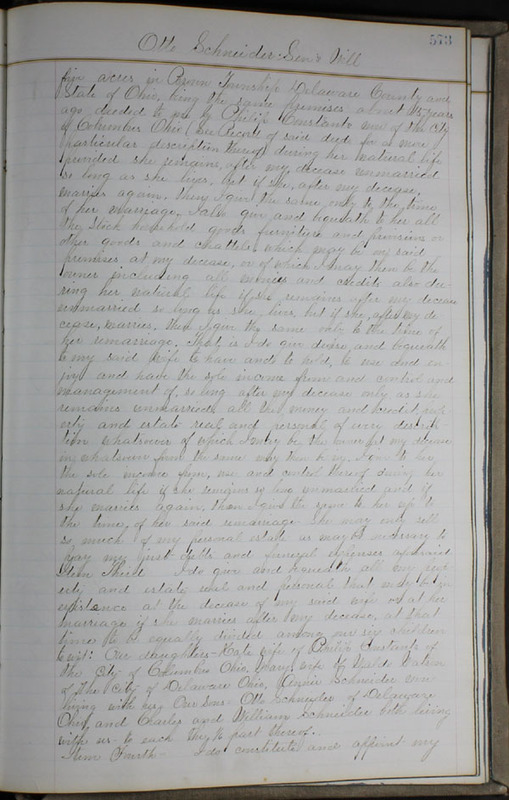 573
Otto Schneider Sen's Will
five acres in Brown Township Delaware County and
State of Ohio, being the same premises about 15 years
ago deeded to me by Philip Constants now of the City
of Columbus Ohio (See Record of said deed for a more
particular description thereof) during her natural life
provided she remains, after my decease unmarried
so long as she lives, but if she, after my decease,
marries again, then I give the same, only to the time
of her marriage. I also give and bequeath to her all
the stock household goods furniture and provisions or
other goods and chattels which may be on my said
premises at my decease, or of which I may then be the
owner including all monies and credits also du-
ring her natural life if she remains after my decease
unmarried so long as she lives, but if she, after my de
cease, marries, then I give the same only to the time of
her remarriage. That is I do give devise and bequeath
to my said wife to have and to hold, to use and en
joy and have the sole income from and control and
management of, so long after my decease only as she
remains unmarried all the money and credit, prop
erty and estate real and personal of every descrip
tion whatsoever of which I may be the owner at my decease
in whatsoever form the same may then be in, I give to her
the sole income from, use and control thereof during her
natural life if she remains so long unmarried and if
she marries again, then I give the same to her up to
the time, of her said remarriage she may only sell
so much of my personal estate as may be necessary to
pay my just debts and funeral expenses aforesaid
Item Third I do give and bequeath all my prop
erty and estate, real and personal that may be in
existence at the decease of my said wife or at her
marriage if she marries after my decease, at that
time to be equally divided among our six children
to wit: Our daughters Kate wife of Philip Constants of
the City of Columbus Ohio, Mary wife of Watson
of the City of Delaware Ohio, Annie Schneider now
living with us, Our Sons Otto Schneider of Delaware
Ohio, and Charles and William Schneider both living
with us to each the part thereof.
Item Fourth I do constitute and appoint my